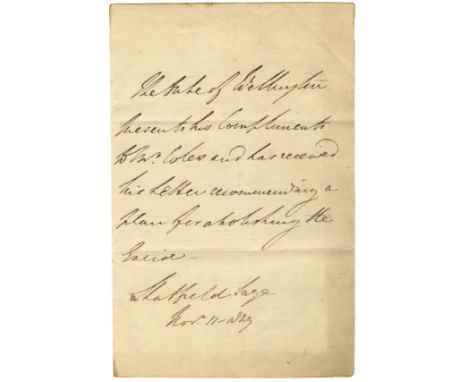 The Duke of Wellington
presents his Compliments
to Mr. Coles and has received
his Letter recommending a
plan for abolishing the
Excise -
Stratfield Saye
Novr. 11 - 1829